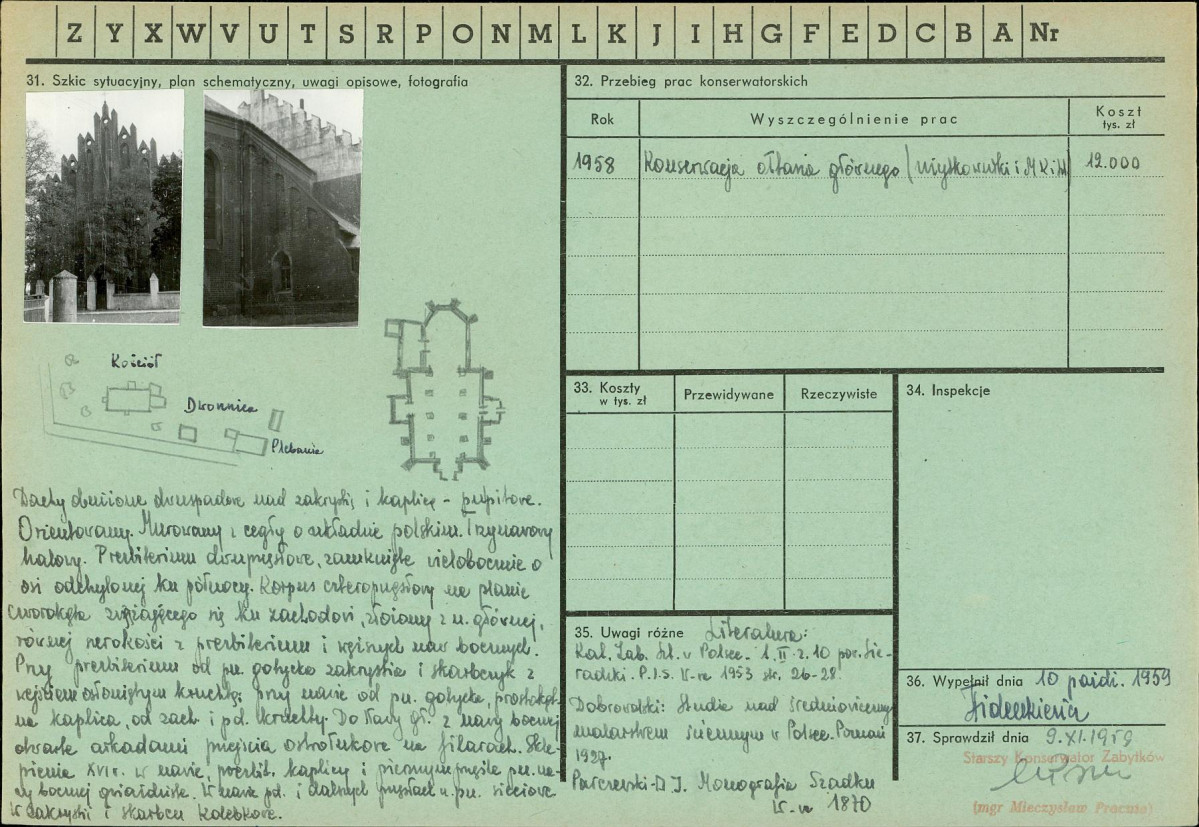 Z Y X W V U T S R P O N M L K J I H G F E D C B A Nr
31. Szkic sytuacyjny, plan schematyczny, uwagi opisowe, fotografia
Kościół
Dzwonnica
Plebania
Dachy obniżone dwuspadowe nad zakrystią i kaplicą - pulpitowe.
Orientowany. Murowany z cegły o układzie polskim. Trzynawowy
halowy. Prezbiterium dwuprzęsłowe, zamknięte wielobocznie o
osi odchylonej ku północy. Korpus czteroprzęsłowy na planie
czworokąta zwężającego się ku zachodowi, złożony z n. głównej,
równej szerokości z prezbiterium i węższych naw bocznych.
Przy prezbiterium od pn. gotycka zakrystia i skarbczyk z
wejściem osłoniętym kruchtą; przy nawie od pn. gotycka, prostokąt-
na kaplica, od zach. i pd. kruchty. Do nawy gł. z nawy bocznej
otwarte arkadami przejścia ostrołukowe na filarach. Skle-
pienie XVI w. w nawie, prezbit. kaplicy i pierwszym przęśle pn. na-
wy bocznej gwiaździste. W nawie pd. i dalszych przęsłach n. pn. sieciowe
W zakrystii i skarbcu kolebkowe.
32. Przebieg prac konserwatorskich
Rok
Wyszczególnienie prac
Koszt
tys. zł
1958 Konserwacja ołtarza głównego (użytkownik i MKiSz) 12.000
33. Koszty
w tys. zł
Przewidywane
Rzeczywiste
34. Inspekcje
35. Uwagi różne Literatura:
Kat. Zab. Szt. w Polsce. t. II z. 10 pow. Sie-
radzki. P.I.S. W-wa 1953 str. 26-28.
Dobrowolski: Studia nad średniowiecznym
malarstwem ściennym w Polsce. Poznań
1927.
Parczewski J. Monografia Szadku
W-wa 1870
36. Wypełnił dnia 10 paźdź. 1959
37. Sprawdził dnia 9.XI.1959
Starszy Konserwator Zabytków
(mgr Mieczysław